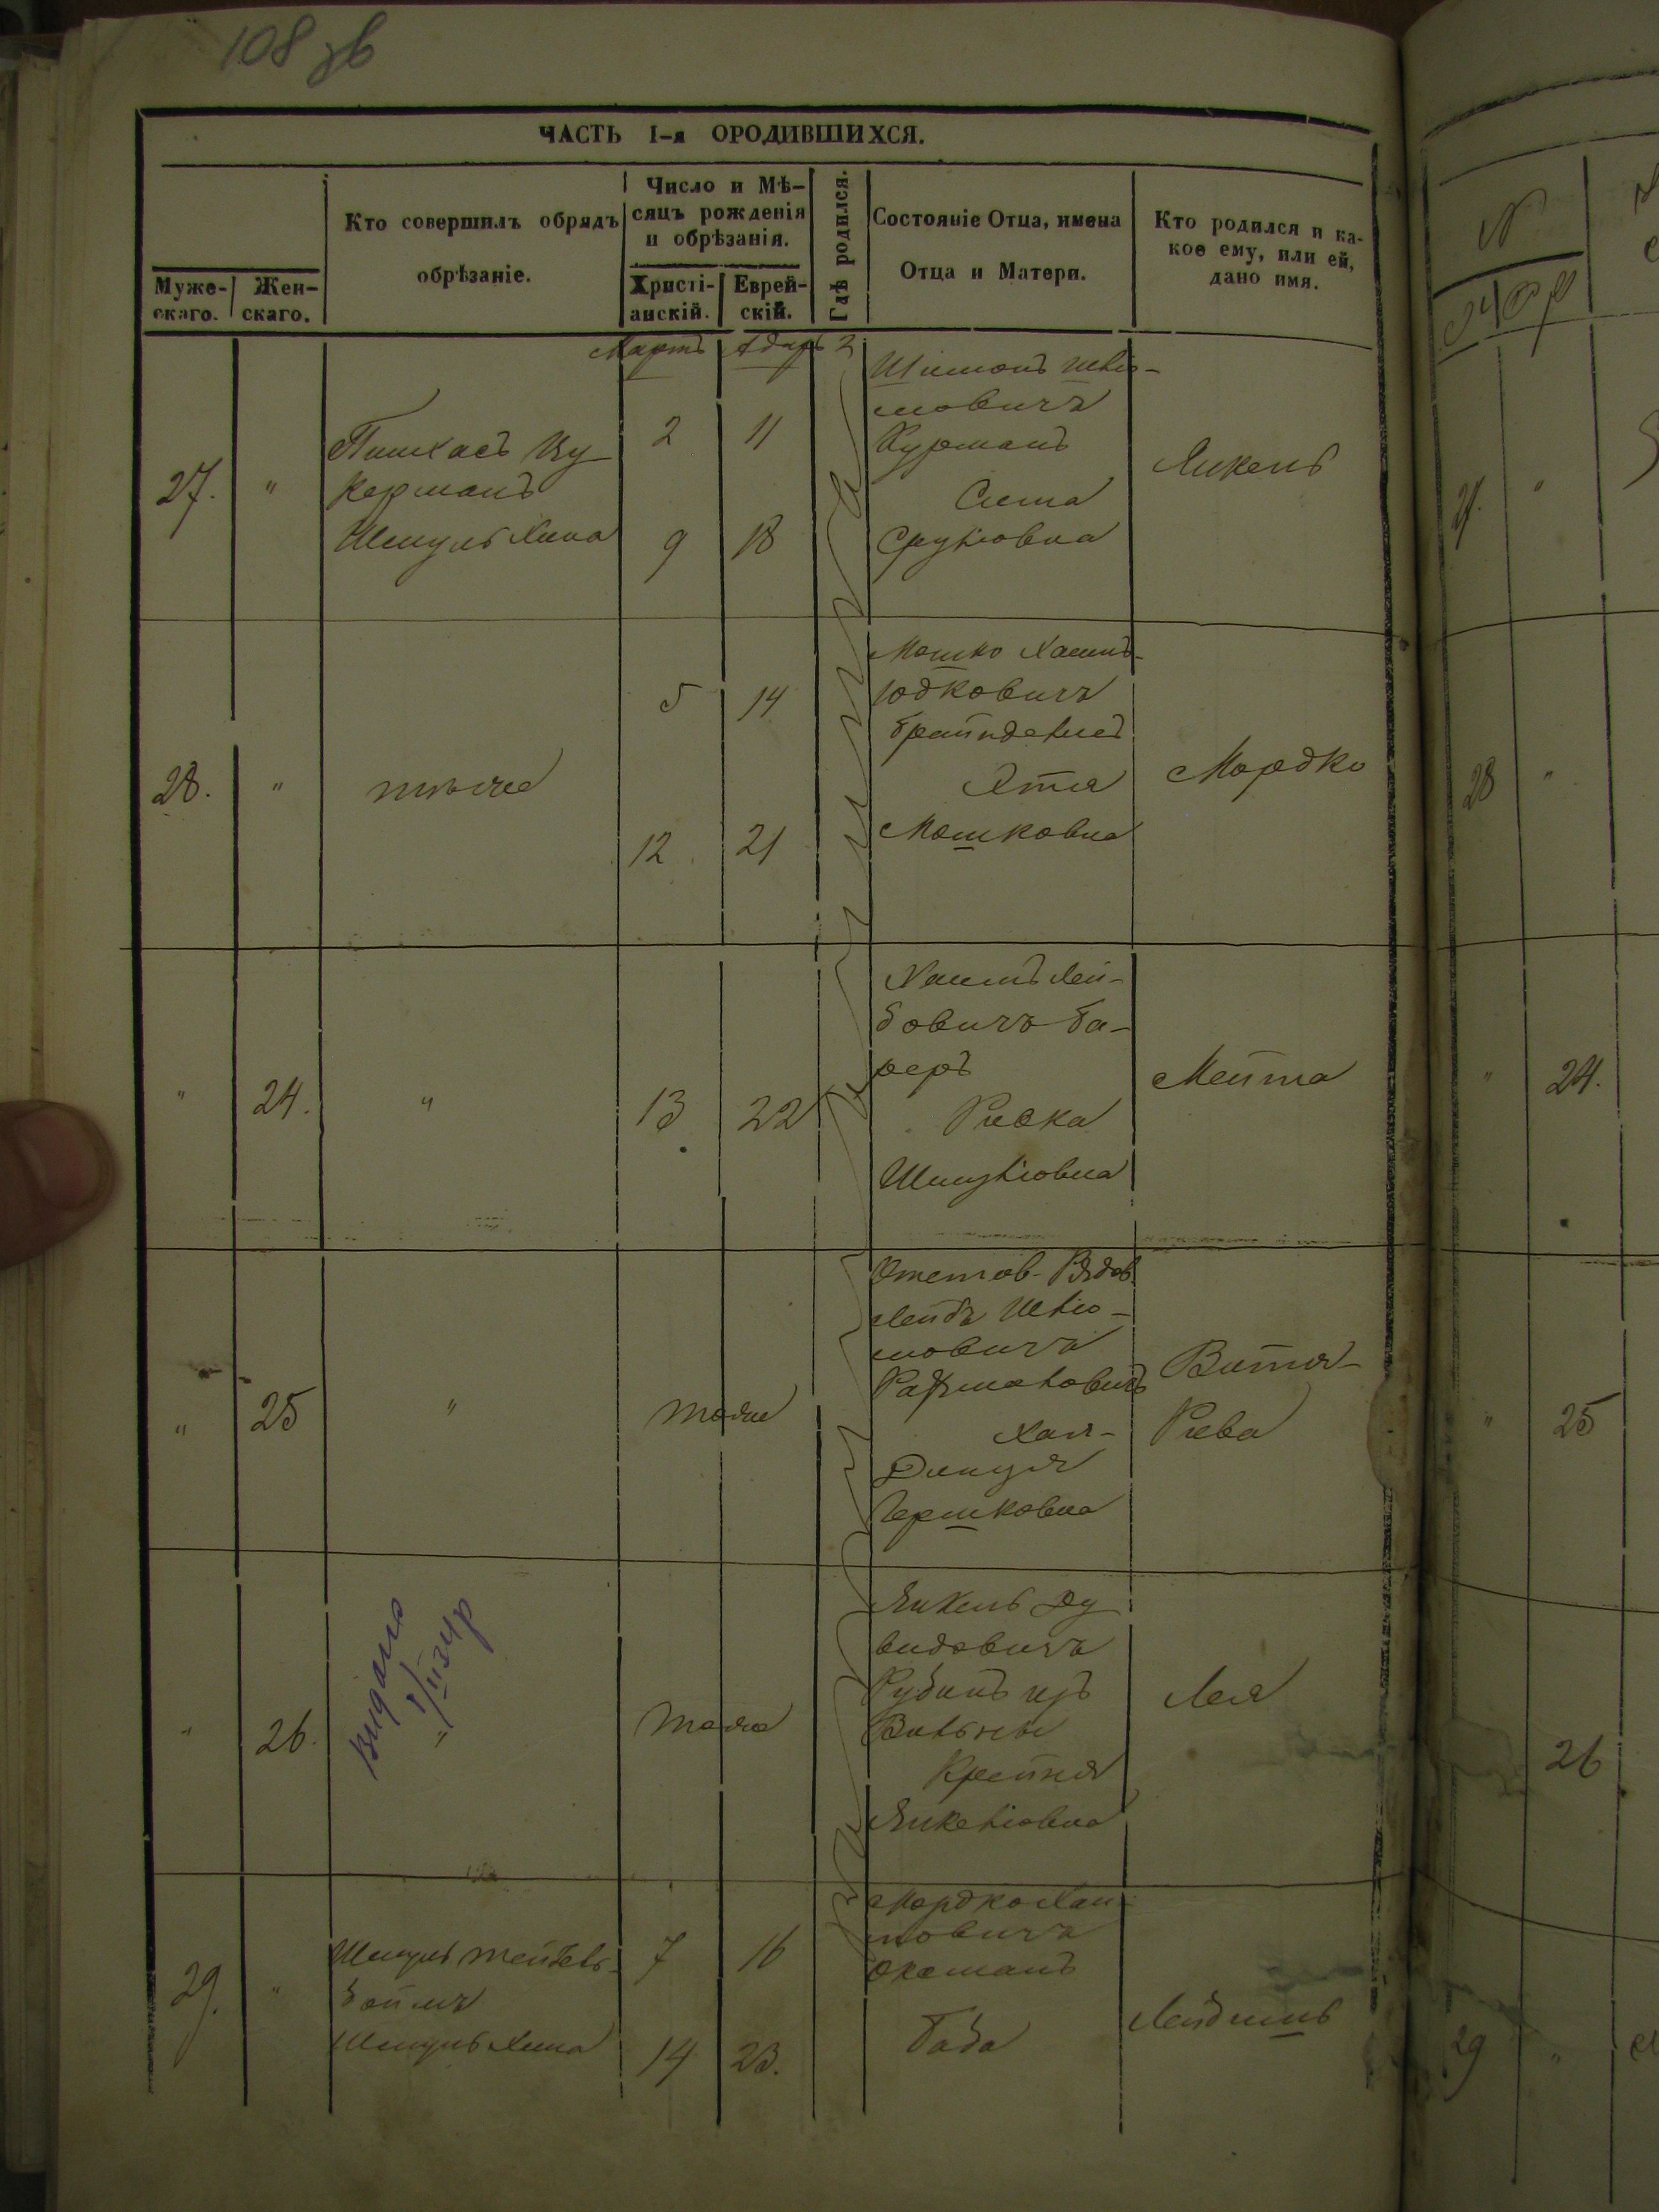 108 зв
ЧАСТЬ I-я ОРОДИВШИХСЯ.
Муже-
скаго.
Жен-
скаго.
Кто совершилъ обрядъ
обрѣзаніе.
Число и Мѣ-
сяцъ рожденія
и обрѣзанія.
Христі-
анскій.
Еврей-
скій.
Гдѣ родился.
Состояніе Отца, имена
Отца и Матери.
Кто родился и ка-
кое ему, или ей,
дано имя.
Мартъ Адаръ 2
27. "
Пинхасъ Цу-
керманъ
Шмуль Хина
2 11
9 18
Шимонъ
мовичъ
Курманъ
Сима
Срулiовна
Янкель
28. "
тѣ же
5 14
12 21
Мошко Хаимъ-
Юдковичъ
Этля
Мошковна
Мордко
" 24. "
13 22
Хаимъ Лей-
бовичъ Ба-
реръ
Ривка
Шмулiовна
Мейта
" 25 "
тоже
Рядов.
Лейбъ
мовичъ
Хая-
Гершковна
Рива
" 26.
Видано
тоже
Янкель Ду
видовичъ
Рубинъ изъ
Вильны
Крейня
Янкелiовна
Лея
29. "
Шмуль
Шмуль Хина
7 16
14 23.
Мордко Хаи-
мовичъ
Баба
N
М
27. "
28 "
" 24.
" 25
26
29 "